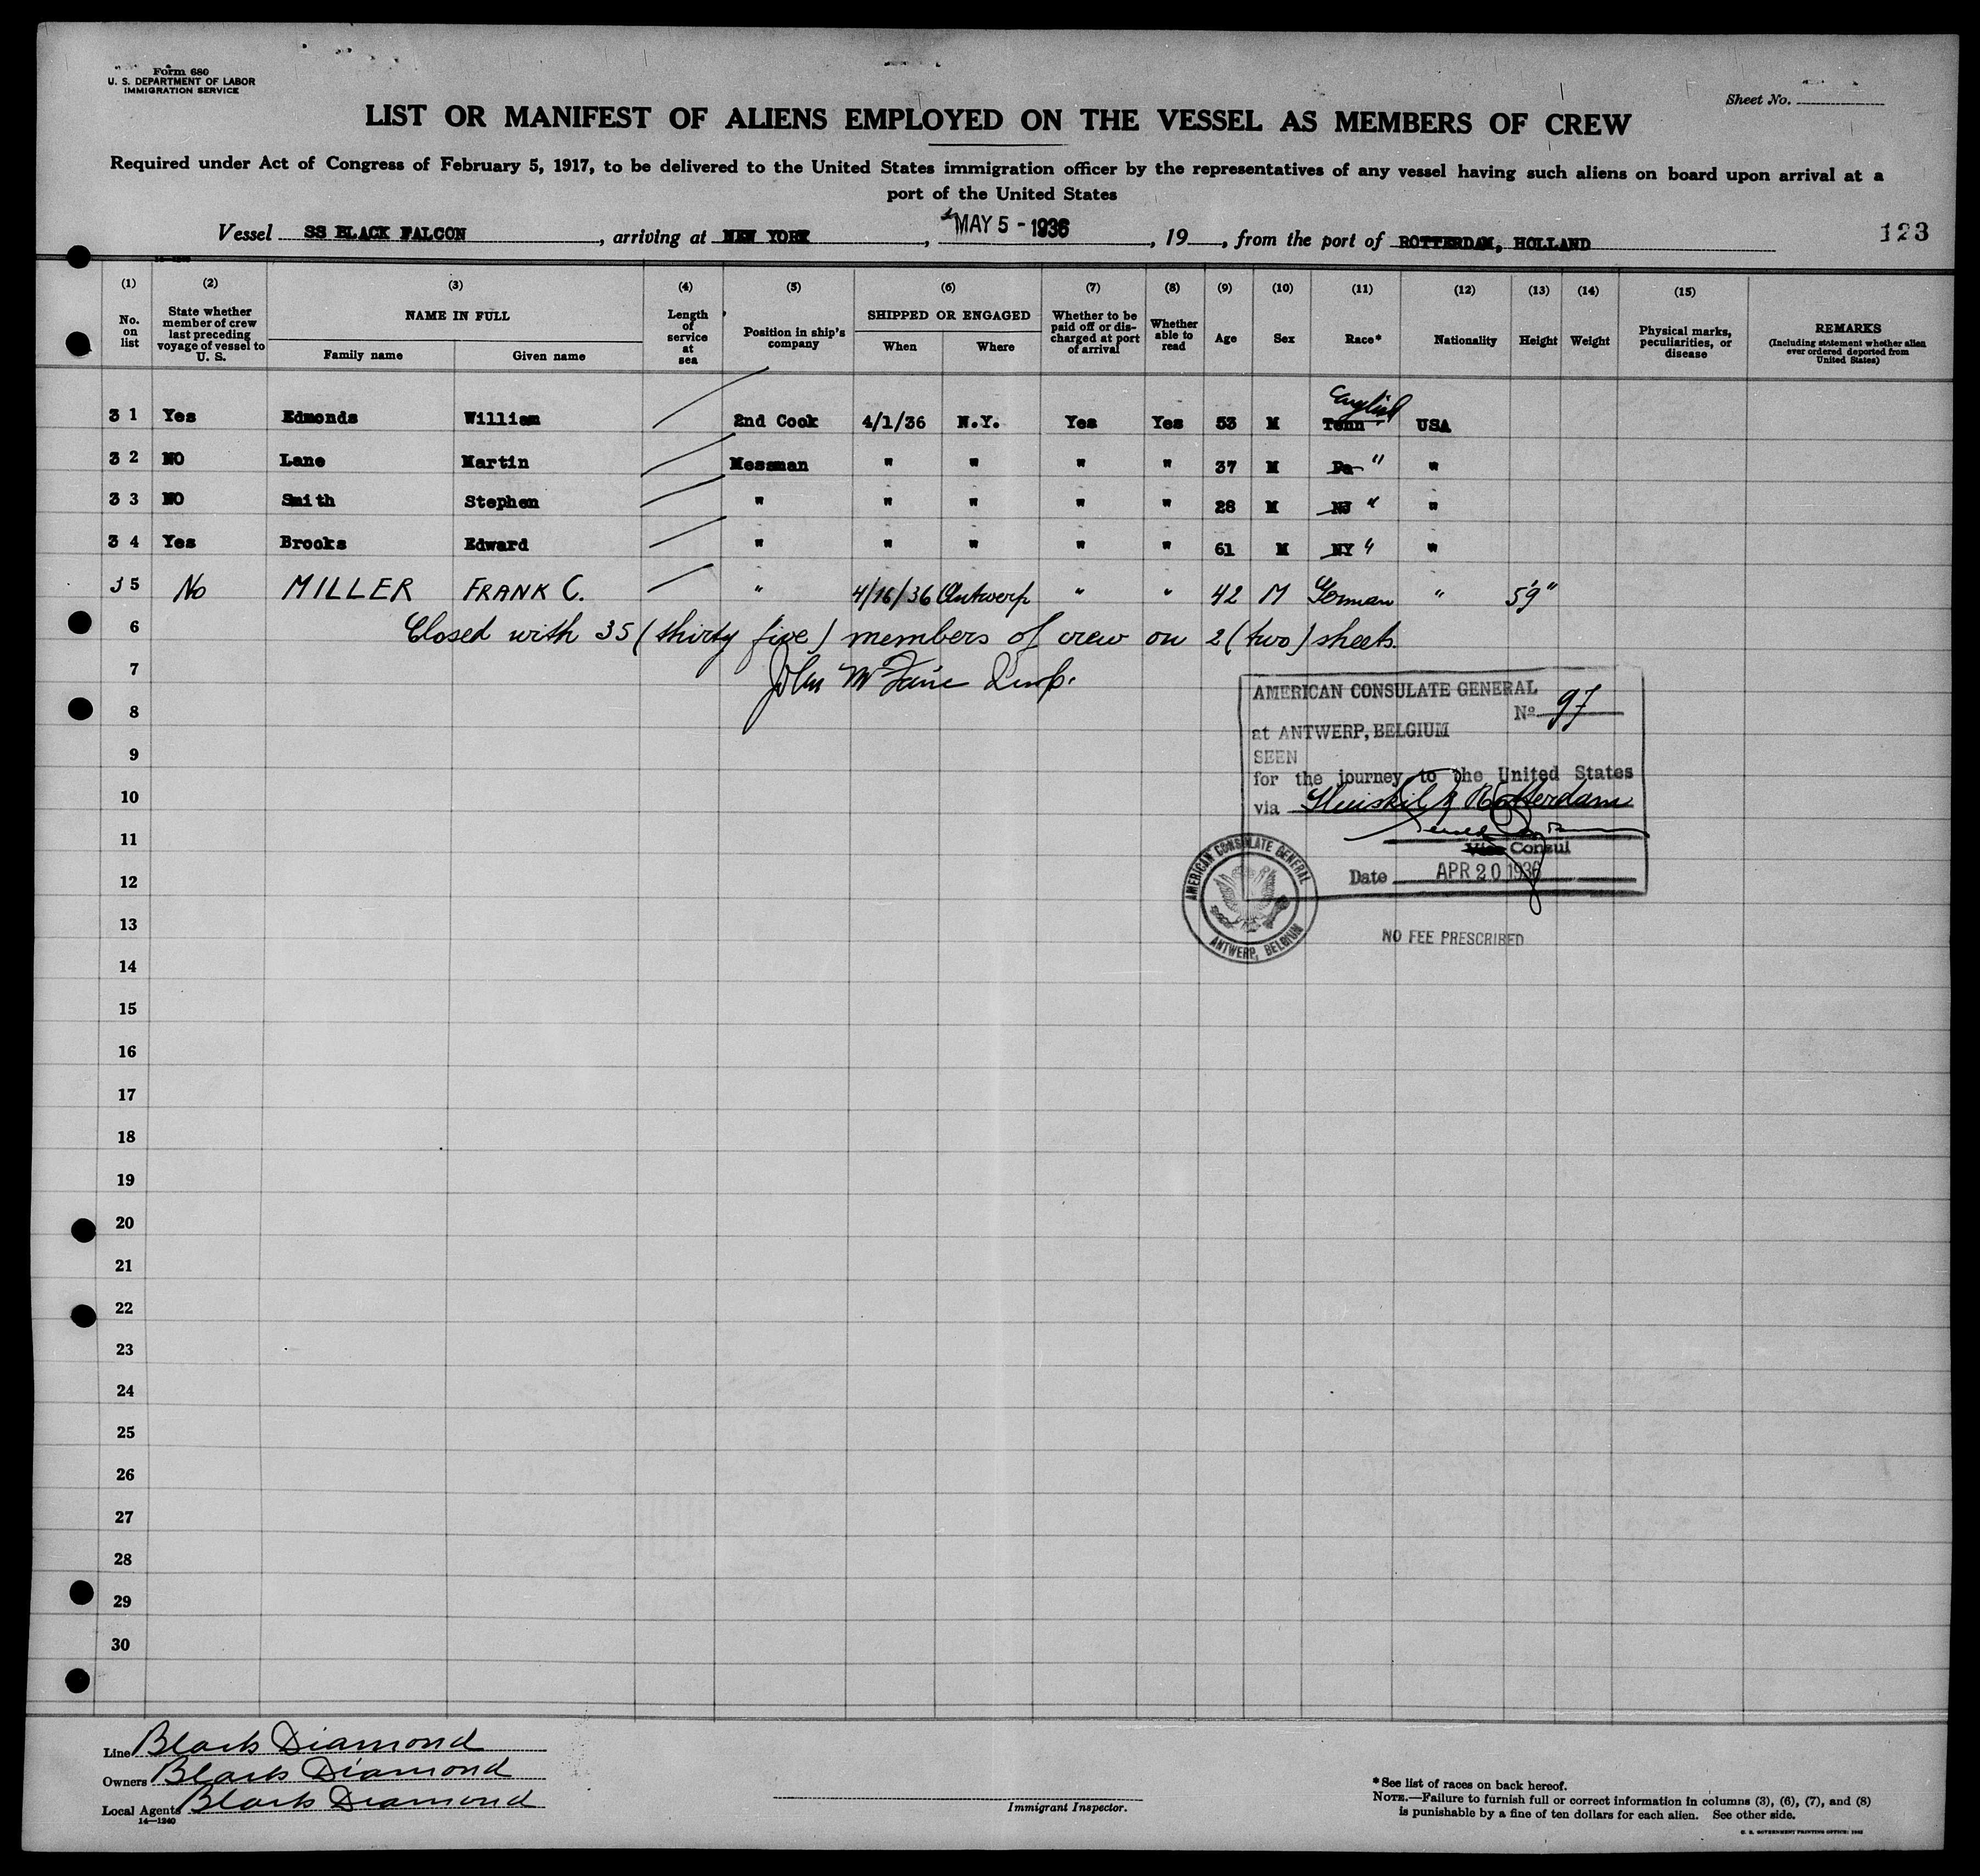 Form 680
U. S. DEPARTMENT OF LABOR
IMMIGRATION SERVICE
Sheet No.
LIST OR MANIFEST OF ALIENS EMPLOYED ON THE VESSEL AS MEMBERS OF CREW
Required under Act of Congress of February 5, 1917, to be delivered to the United States immigration officer by the representatives of any vessel having such aliens on board upon arrival at a
port of the United States
Vessel SS BLACK FALCON, arriving at NEW YORK, MAY 5 - 1936, 19, from the port of ROTTERDAM, HOLLAND
123
(1) (2) (3) (4) (5) (6) (7) (8) (9) (10) (11) (12) (13) (14) (15)
No. on list
State whether member of crew last preceding voyage of vessel to U. S.
NAME IN FULL
Family name Given name
Length of service at sea
Position in ship's company
SHIPPED OR ENGAGED
When Where
Whether to be paid off or discharged at port of arrival
Whether able to read
Age
Sex
Race*
Nationality
Height
Weight
Physical marks, peculiarities, or disease
REMARKS
(Including statement whether alien ever ordered deported from United States)
3 1 Yes Edmonds William 2nd Cook 4/1/36 N.Y. Yes Yes 53 M Tenn English USA
3 2 NO Lane Martin Messman " " " " 37 M Pa " "
3 3 NO Smith Stephen " " " " " 28 M NJ " "
3 4 Yes Brooks Edward " " " " " 61 M NY " "
3 5 No MILLER FRANK C. " 4/16/36 Antwerp " " 42 M German " 5'9"
6 Closed with 35 (thirty five) members of crew on 2 (two) sheets.
7 John
8
9
10
11
12
13
14
15
16
17
18
19
20
21
22
23
24
25
26
27
28
29
30
AMERICAN CONSULATE GENERAL
No. 97
at ANTWERP, BELGIUM
SEEN
for the journey to the United States
via Sluiskil & Rotterdam
Vice Consul
Date APR 20 1936
AMERICAN CONSULATE GENERAL
ANTWERP, BELGIUM
NO FEE PRESCRIBED
Line Black Diamond
Owners Black Diamond
Local Agents Black Diamond
14—1240
Immigrant Inspector.
*See list of races on back hereof.
NOTE.—Failure to furnish full or correct information in columns (3), (6), (7), and (8)
is punishable by a fine of ten dollars for each alien. See other side.